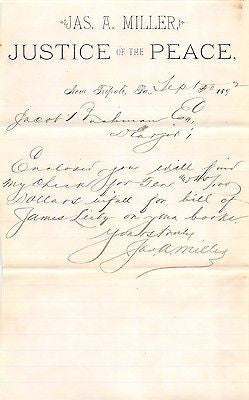 JAS. A. MILLER,
JUSTICE OF THE PEACE,
New Tripoli, Pa. Sept
Jacob Esq,
Dear Sir;
Enclosed you will find
my Check for Ten
Dollars in full for bill of
James Leiby on your books.
Yours truly
Jas. A. Miller